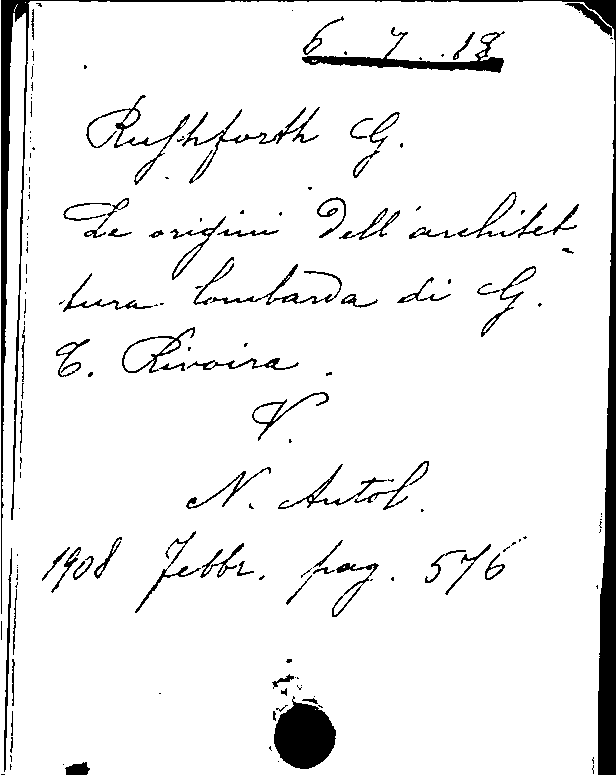 6.7..18
Rushforth G.
Le origini dell'architet-
tura lombarda di G.
T. Rivoira.
V.
N. Antol.
1908 Febbr. pag. 576